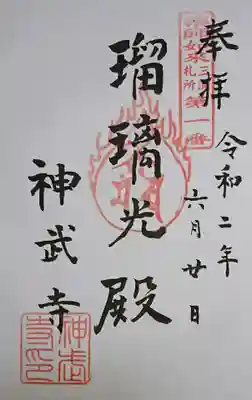 奉拝
第一番
札所
令和二年
六月廿日
瑠璃光殿
神武寺
神武
寺印